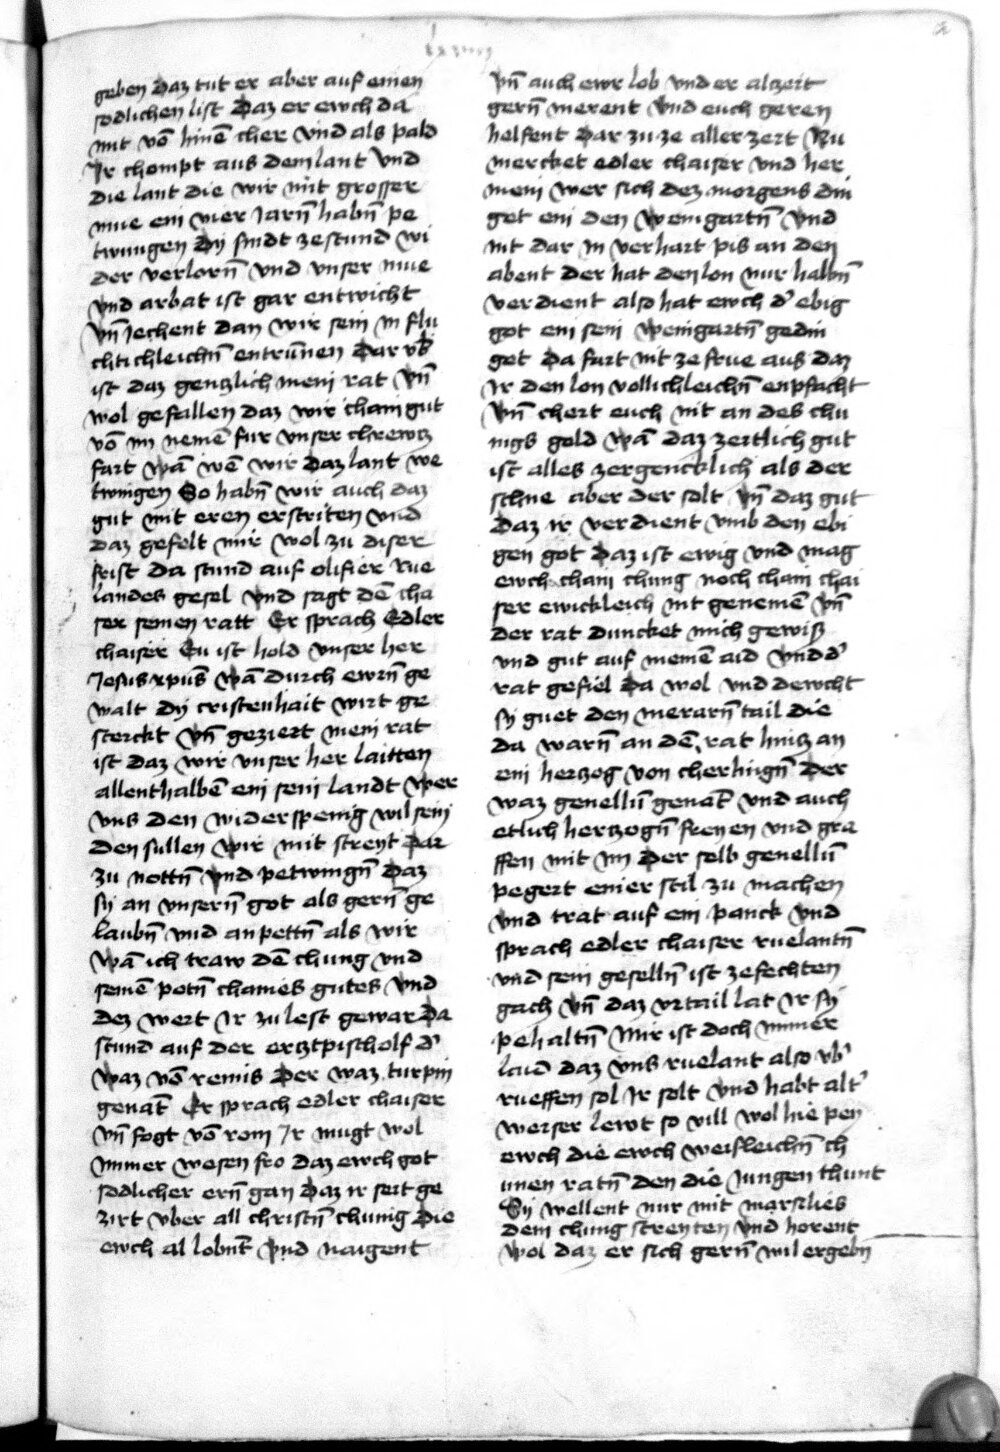 geben daz tut er aber auf einen
sodlichen list daz er ewch da
mit võ hinẽ cher vnd als pald
Ir chompt aus dem lant vnd
die lant die wir mit grosser
mue ein vier Jarñ habñ pe
twungen dy sindt ze stund wi
der verlorñ vnd vnser mue
vnd arbat ist gar entwicht
vñ Jechent dan wir sein in flu
chtichleichñ entrunnen Dar vb̄
ist daz genczlich mein rat vñ
wol gefallen daz wir chain gut
võ im nemẽ fur vnser chrewcz
fart wã wẽ wir daz lant we
twingen So habñ wir auch daz
gut mit eren erstriten vnd
daz gefelt mir wol zu diser
frist da stund auf olifier rue
landes gesel vnd sagt dẽ cha
ser seinen ratt Er sprach Edler
chaiser Eu ist hold vnser her
Jesus xpus̄ wã durch ewrñ ge
walt dy cristenhait wirt ge
sterckt vñ geziert mein rat
ist daz wir vnser her laitten
allenthalbẽ ein sein landt wer
vns den widerspenig wil sein
den sullen wir mit streyt dar
zu nottñ vnd petwingñ daz
sy an vnserñ got als gerñ ge
laubñ vnd anpettñ als wir
wã ich traw dẽ chung vnd
seinẽ potñ chaines gutes vnd
dez wert Ir zu lest gewar Da
stund auf der ercztpischolf d'
waz võ remis der waz turpin
genãt Er sprach edler chaiser
vñ fogt võ rom Ir mugt wol
Immer wesen fro daz ewch got
sodlicher erñ gan daz ir seit ge
zirt vber all christñ chunig die
ewch al lobnt vnd naigent
vñ auch ewr lob vnd er alczeit
gerñ merent vnd euch geren
helfent dar zu ze aller zert Nu
mercket edler chaiser vnd her
mein wer sich dez morgens din
get ein den weingartñ vnd
nit dar in verhart pis an den
abent der hat den lon nur halbñ
verdient also hat ewch d' ebig
got ein sein weingartñ gedin
get da fart nit ze frue aus daz
Ir den lon vollichleichñ enpfacht
vñ chert euch nit an des chu
nigs gold wã daz zertlich gut
ist alles zergencklich als der
schne aber der solt vñ daz gut
daz ir verdient vmb den ebi
gen got daz ist ewig vnd mag
ewch chain chung noch chain chai
ser ewickleich nit genemẽ vñ
der rat duncket mich gewiß
vnd gut auf meinẽ aid vnd d'
rat gefiel da wol vnd dewcht
sy guet den merarñ tail die
da warñ an dẽ rat hincz an
ein herczog von cherlingñ der
waz genellũ genãt vnd auch
etlich herczogñ freyen vnd gra
ffen mit im der selb genellũ
pegert einer stil zu machen
vnd trat auf ein panck vnd
sprach edler chaiser ruelantñ
vnd sein gesellñ ist ze fechten
gach vñ daz vrtail lat Ir sy
pehaltñ Mir ist doch immer
laid daz vns ruelant also vb'
rueffen sol Ir solt vnd habt alt'
weiser lewt so vill wol hie pey
ewch die ewch weisleichñ ch
unen ratñ den die Jungen thunt
Sy wellent nur mit marsilies
dem chung streyten vnd horent
wol daz er sich gerñ wil ergebñ